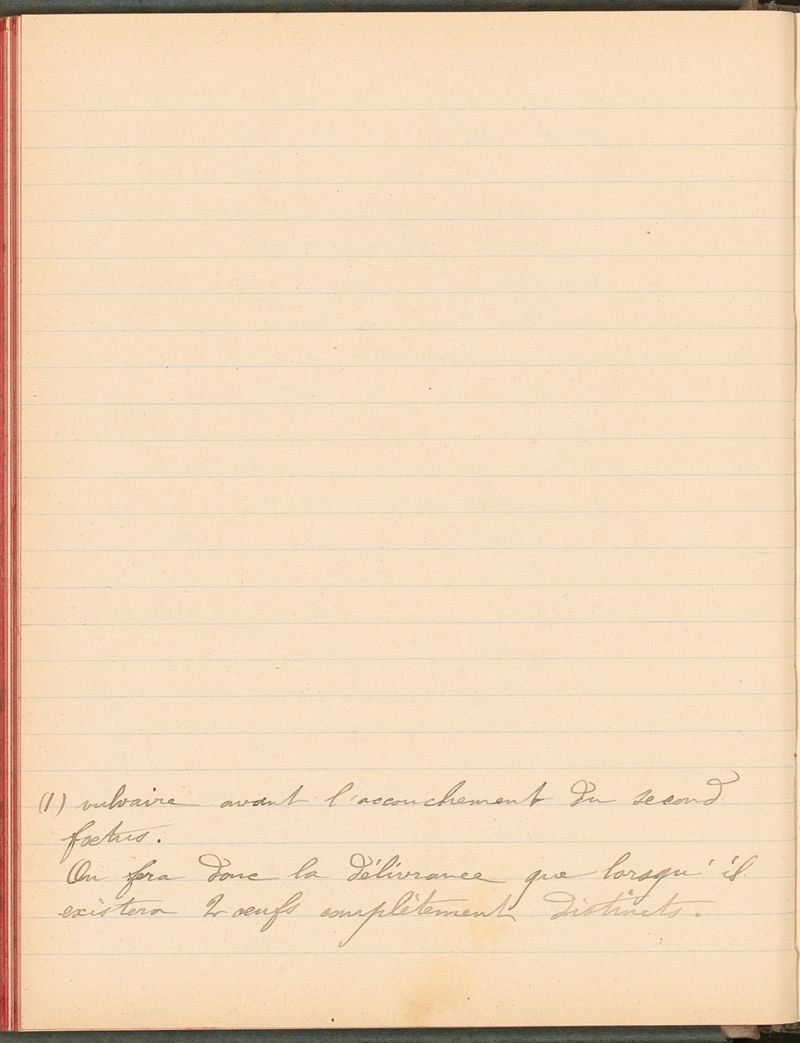 (1) vulvaire avant l'accouchement du second
foetus.
On fera donc la délivrance que lorsqu'il
existera 2 oeufs complètement distincts.